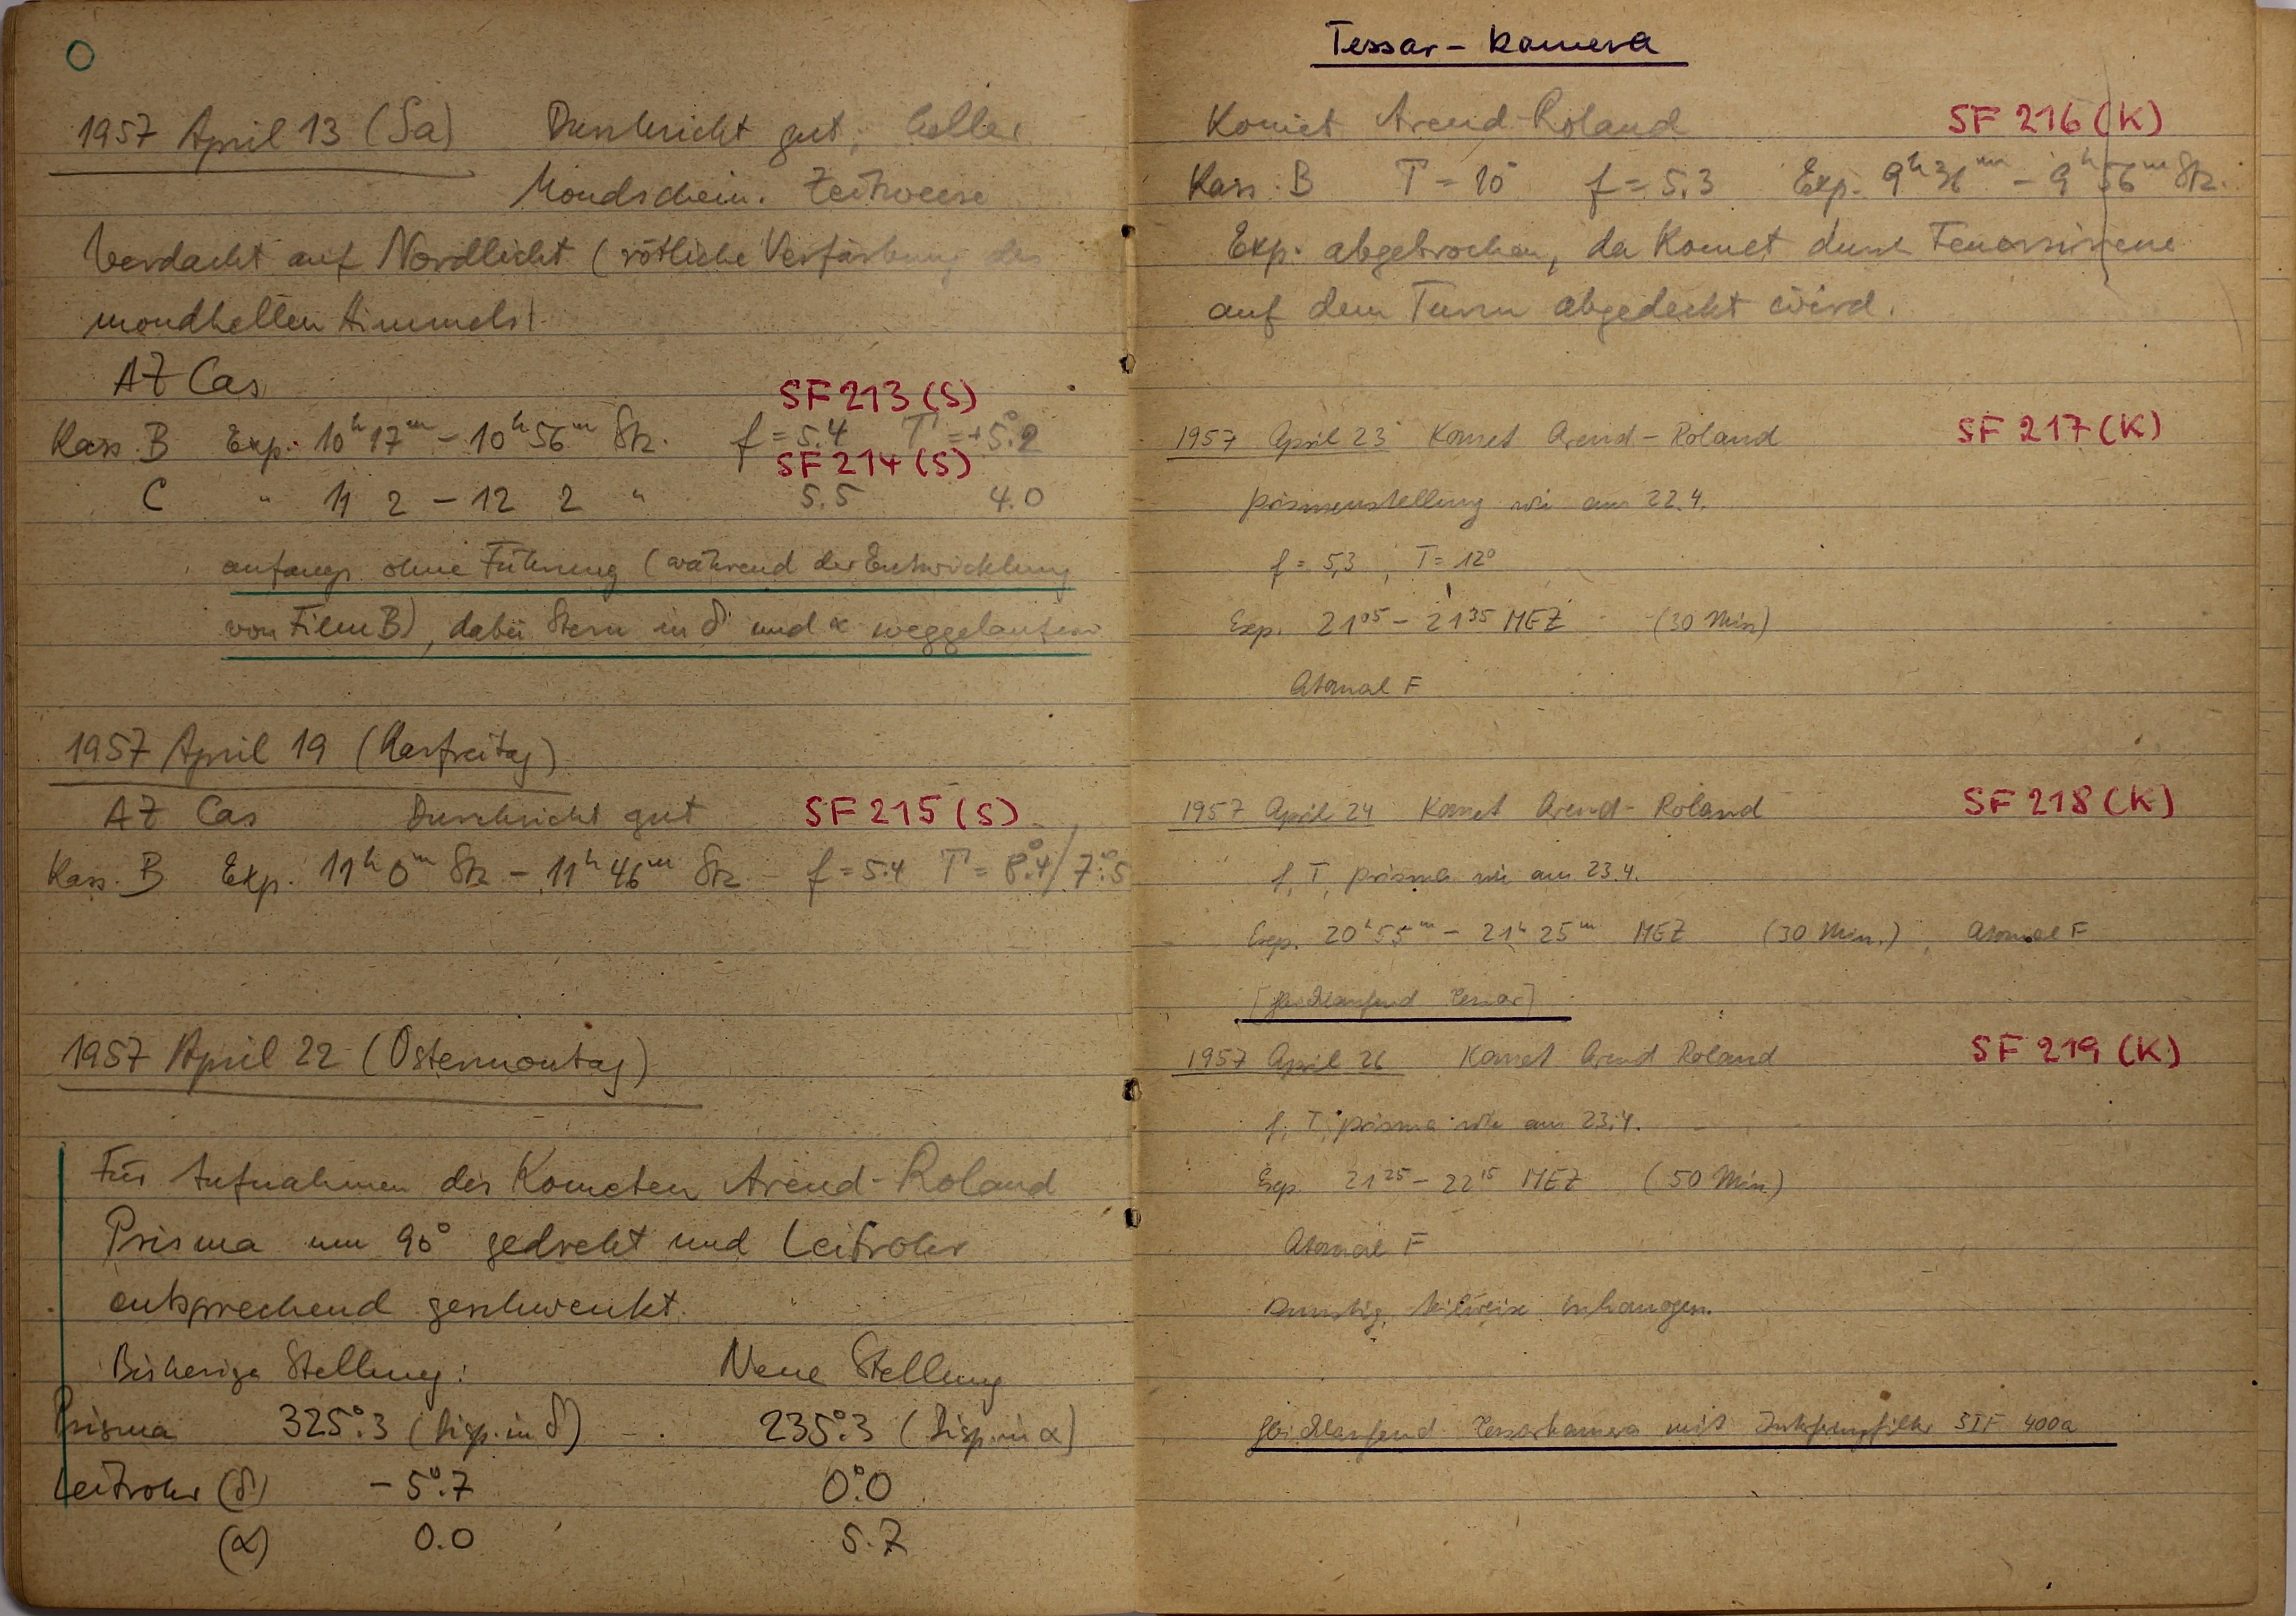 1957 April 13 (Sa) Durchsicht gut, heller
Mondschein. Zeitweise
Verdacht auf Nordlicht (rötliche Verfärbung des
mondhellen Himmels)
AZ Cas
SF 213 (S)
Kass. B Exp. 10h 17m - 10h 56m Stz. f = 5.4 T = +5°.2
SF 214 (S)
C " 11 2 - 12 2 " 5.5 4.0
anfangs ohne Führung (während der Entwicklung
von Film B), dabei Stern in δ und α weggelaufen
1957 April 19 (Karfreitag)
AZ Cas Durchsicht gut SF 215 (S)
Kass. B Exp. 11h 0m Stz - 11h 46m Stz f = 5.4 T = 8°.4/7°.5
1957 April 22 (Ostermontag)
Für Aufnahmen des Kometen Arend-Roland
Prisma um 90° gedreht und Leitrohr
entsprechend geschwenkt.
Bisherige Stellung: Neue Stellung
Prisma 325°.3 (Disp. in δ) 235°.3 (Disp. in α)
Leitrohr (δ) - 5°.7 0°.0
(α) 0.0 5.7
Tessar - Kamera
Komet Arend-Roland SF 216 (K)
Kass. B T = 10° f = 5.3 Exp. 9h 36m - 9h 56m Stz.
Exp. abgebrochen, da Komet durch Feuersirene
auf dem Turm abgedeckt wird.
1957 April 23 Komet Arend-Roland SF 217 (K)
Prismenstellung wie am 22.4.
f = 5,3, T = 12°
Exp. 21 05 - 21 35 MEZ (30 Min)
Atomal F
1957 April 24 Komet Arend-Roland SF 218 (K)
f, T, Prisma wie am 23.4.
Exp. 20h 55m - 21h 25m MEZ (30 Min.), Atomal F
[Gleichlaufend Tessar]
1957 April 26 Komet Arend Roland SF 219 (K)
f, T, Prisma wie am 23.4.
Exp 21 25 - 22 15 MEZ (50 Min)
Atomal F
Dunstig, teilweise inhomogen.
Gleichlaufend Tessarkamera mit SIF 400a